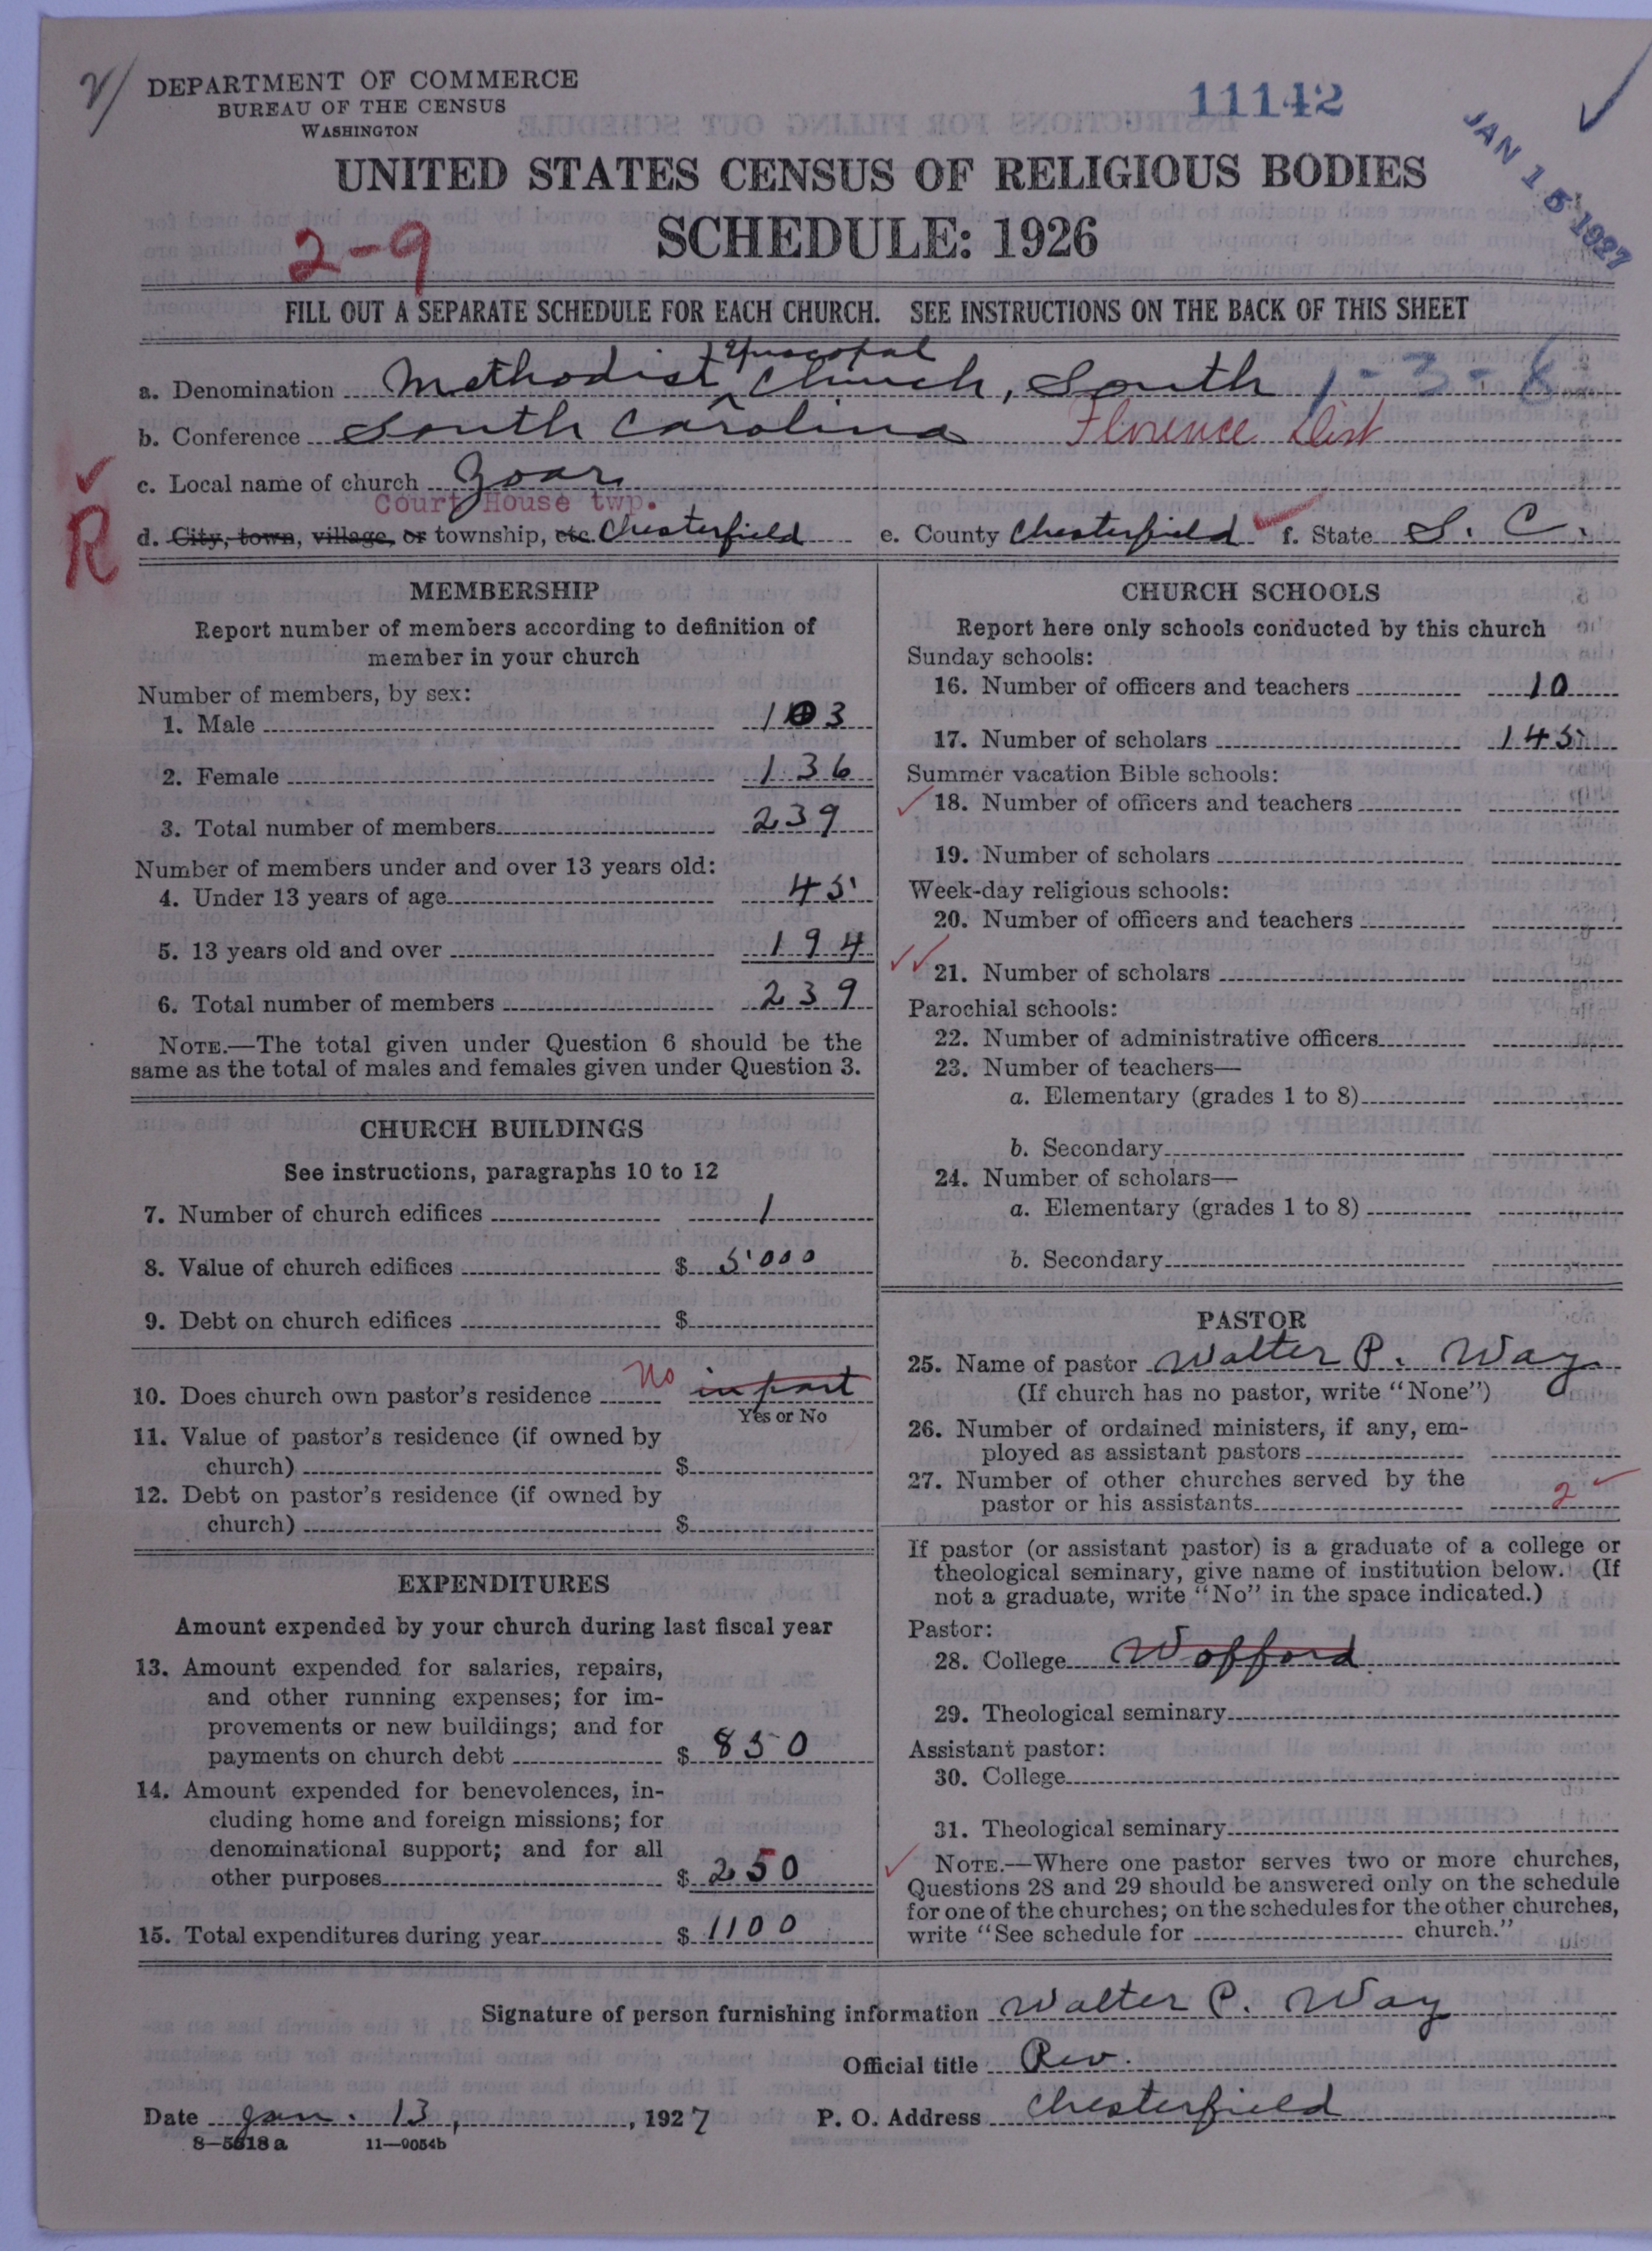 DEPARTMENT OF COMMERCE
BUREAU OF THE CENSUS
WASHINGTON
11142
JAN 15 1927
UNITED STATES CENSUS OF RELIGIOUS BODIES
SCHEDULE: 1926
2-9
FILL OUT A SEPARATE SCHEDULE FOR EACH CHURCH. SEE INSTRUCTIONS ON THE BACK OF THIS SHEET
a. Denomination Methodist Episcopal Church, South 1-3-6
b. Conference South Carolina Florence Dist
c. Local name of church Zoar
Court House twp.
R
d. City, town, village, or township, etc. Chesterfield e. County Chesterfield f. State S. C.
MEMBERSHIP
Report number of members according to definition of
member in your church
Number of members, by sex:
1. Male 103
2. Female 136
3. Total number of members 239
Number of members under and over 13 years old:
4. Under 13 years of age 45
5. 13 years old and over 194
6. Total number of members 239
NOTE.—The total given under Question 6 should be the
same as the total of males and females given under Question 3.
CHURCH BUILDINGS
See instructions, paragraphs 10 to 12
7. Number of church edifices 1
8. Value of church edifices $ 5000
9. Debt on church edifices $
10. Does church own pastor's residence No in part
Yes or No
11. Value of pastor's residence (if owned by
church) $
12. Debt on pastor's residence (if owned by
church) $
EXPENDITURES
Amount expended by your church during last fiscal year
13. Amount expended for salaries, repairs,
and other running expenses; for im-
provements or new buildings; and for
payments on church debt $ 850
14. Amount expended for benevolences, in-
cluding home and foreign missions; for
denominational support; and for all
other purposes $ 250
15. Total expenditures during year $ 1100
CHURCH SCHOOLS
Report here only schools conducted by this church
Sunday schools:
16. Number of officers and teachers 10
17. Number of scholars 145
Summer vacation Bible schools:
18. Number of officers and teachers
19. Number of scholars
Week-day religious schools:
20. Number of officers and teachers
21. Number of scholars
Parochial schools:
22. Number of administrative officers
23. Number of teachers—
a. Elementary (grades 1 to 8)
b. Secondary
24. Number of scholars—
a. Elementary (grades 1 to 8)
b. Secondary
PASTOR
25. Name of pastor Walter P. Way
(If church has no pastor, write "None")
26. Number of ordained ministers, if any, em-
ployed as assistant pastors
27. Number of other churches served by the
pastor or his assistants 2
If pastor (or assistant pastor) is a graduate of a college or
theological seminary, give name of institution below. (If
not a graduate, write "No" in the space indicated.)
Pastor:
28. College Wofford
29. Theological seminary
Assistant pastor:
30. College
31. Theological seminary
NOTE.—Where one pastor serves two or more churches,
Questions 28 and 29 should be answered only on the schedule
for one of the churches; on the schedules for the other churches,
write "See schedule for church."
Signature of person furnishing information Walter P. Way
Official title Rev.
Date Jan. 13, 1927 P. O. Address Chesterfield
8—5518 a 11—9054b